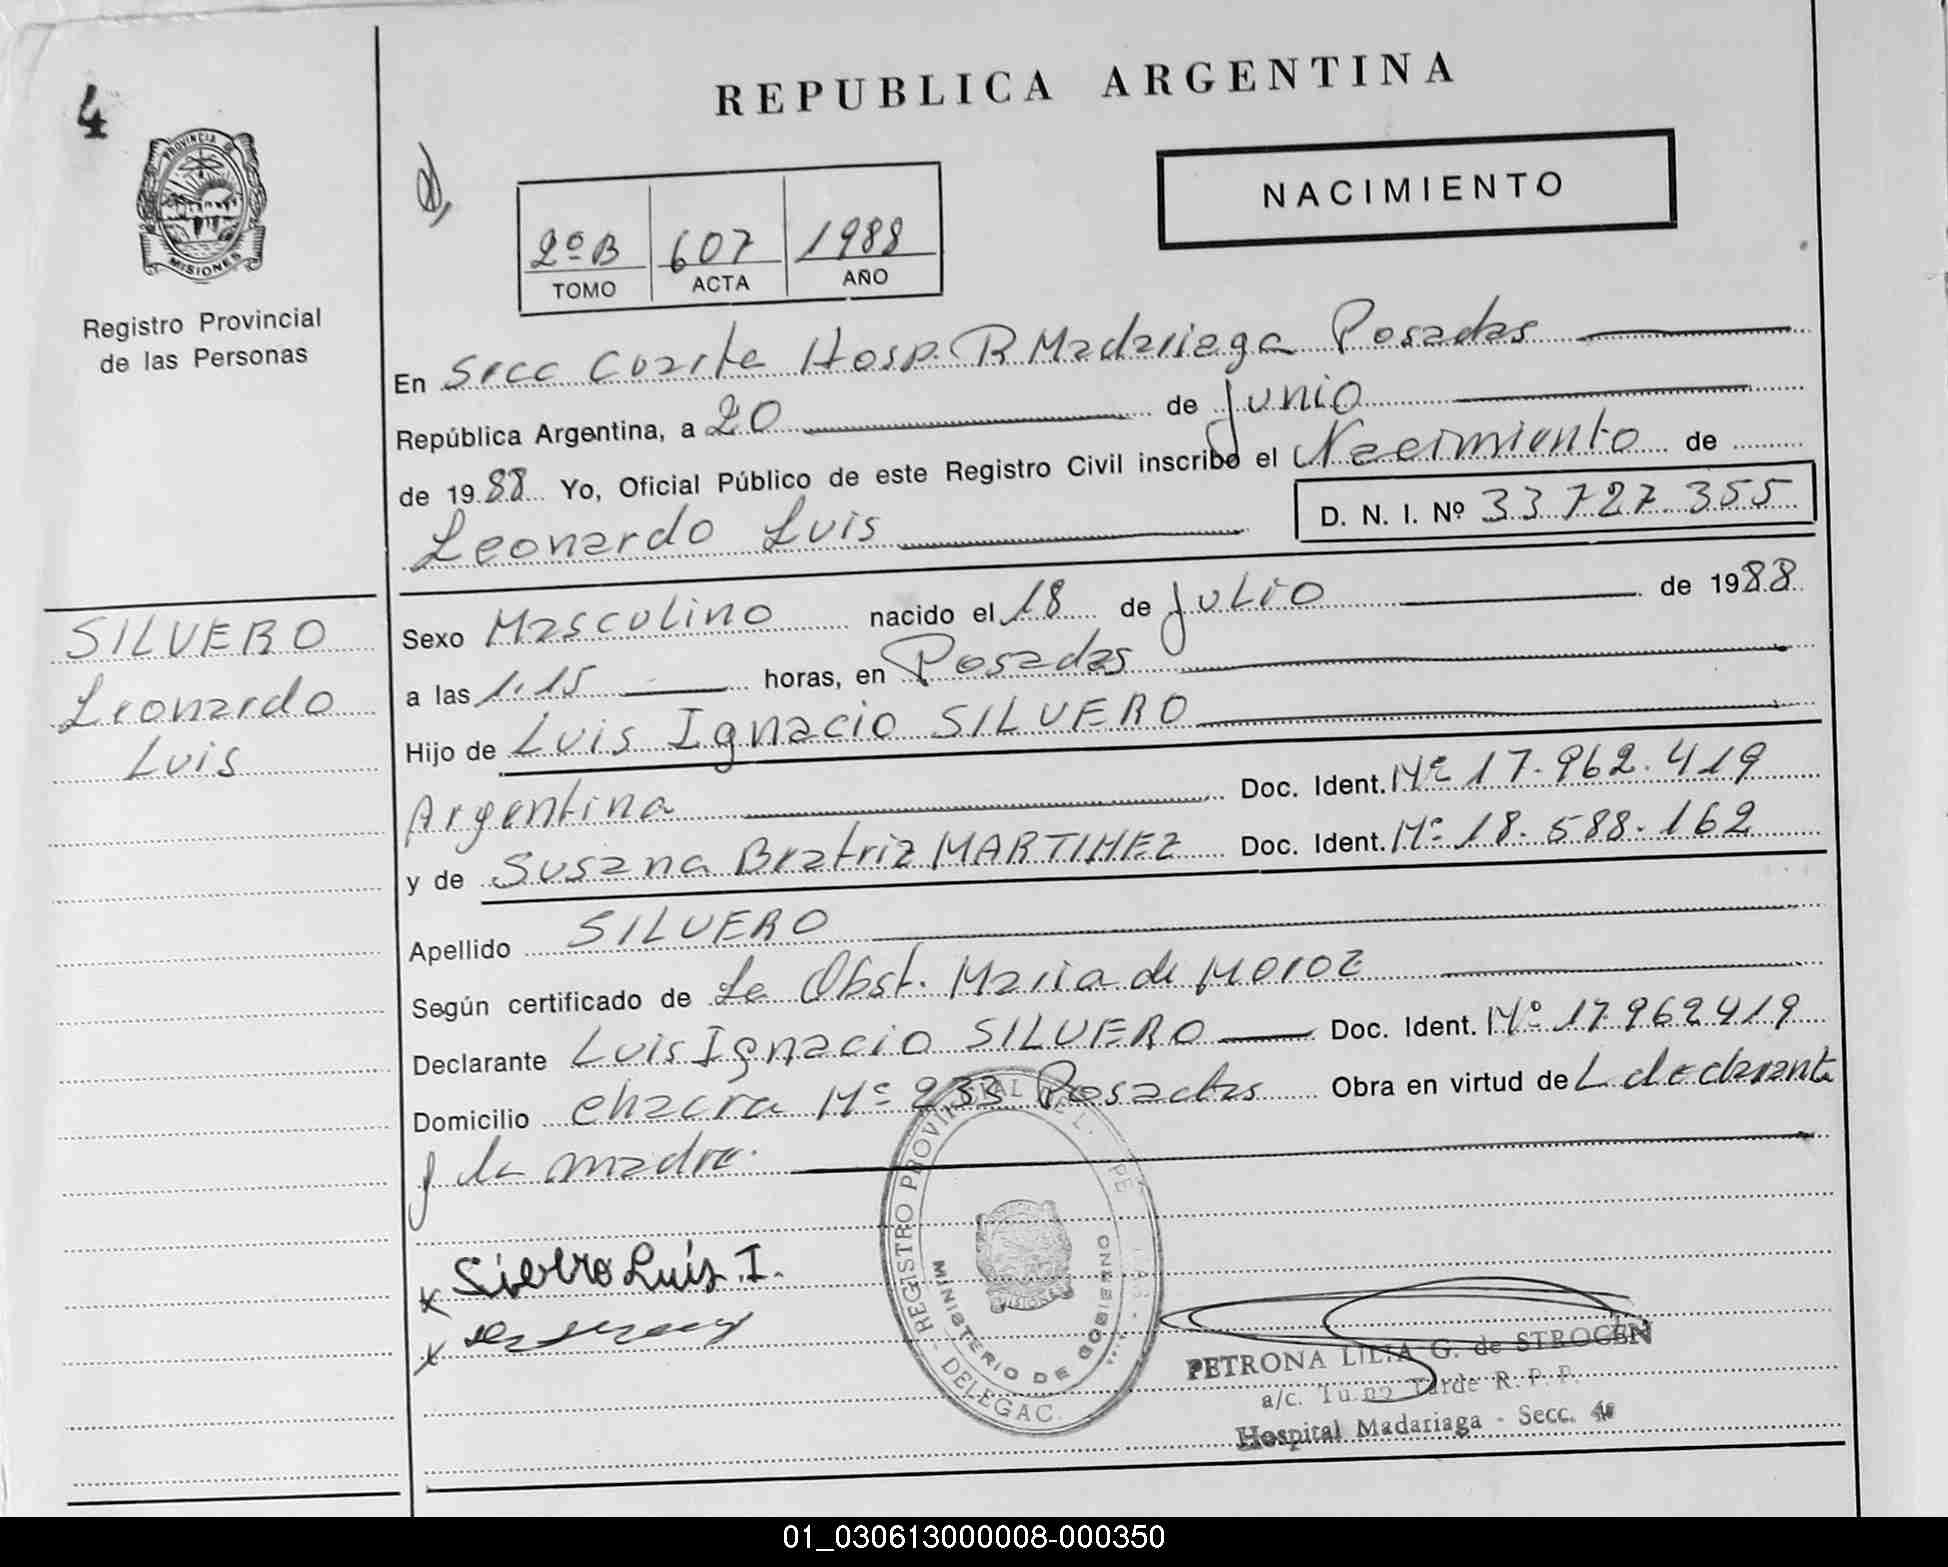 4
REPUBLICA ARGENTINA
NACIMIENTO
2º B 607 1988
TOMO ACTA AÑO
PROVINCIA DE
MISIONES
Registro Provincial
de las Personas
En Secc Cuarta Hosp. R Madariaga Posadas
República Argentina, a 20 de Junio
de 1988 Yo, Oficial Público de este Registro Civil inscribo el Nacimiento de
Leonardo Luis D. N. I. Nº 33 727 355
SILVERO
Leonardo
Luis
Sexo Masculino nacido el 18 de Julio de 1988
a las 1.15 horas, en Posadas
Hijo de Luis Ignacio SILVERO
Argentina Doc. Ident. Nº 17.962.419
y de Susana Beatriz MARTINEZ Doc. Ident. Nº 18.588.162
Apellido SILVERO
Según certificado de La Obst. Maria de Moroz
Declarante Luis Ignacio SILVERO Doc. Ident. Nº 17962419
Domicilio Chacra Nº 233 Posadas Obra en virtud de L declarante
y la madre.
x Silvero Luis I.
x
REGISTRO PROVINCIAL DE L. PE
MINISTERIO DE GOBIERNO
DELEGAC.
PETRONA LILIA G. de STROCEN
a/c. Turno Tarde R. P. P.
Hospital Madariaga - Secc. 4ª
01_030613000008-000350